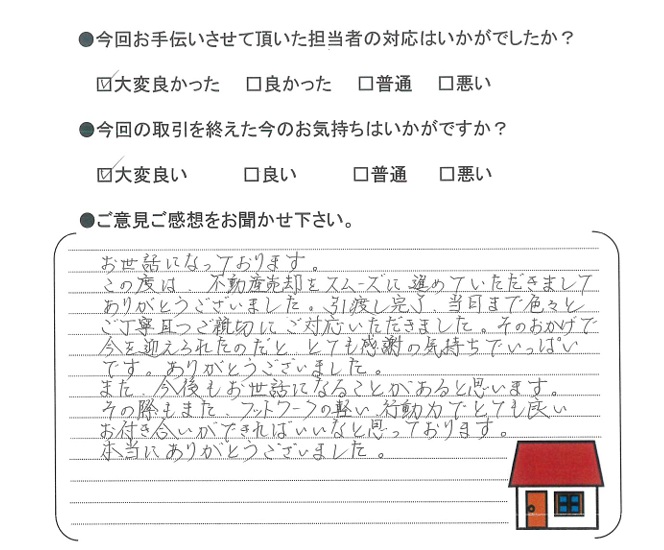 ●今回お手伝いさせて頂いた担当者の対応はいかがでしたか？
☑大変良かった □良かった □普通 □悪い
●今回の取引を終えた今のお気持ちはいかがですか？
☑大変良い □良い □普通 □悪い
●ご意見ご感想をお聞かせ下さい。
お世話になっております。
この度は、不動産売却をスムーズに進めていただきまして
ありがとうございました。引渡し完了、当日まで色々と
ご丁寧且つご親切にご対応いただきました。そのおかげで
今を迎えられたのだと、とても感謝の気持ちでいっぱい
です。ありがとうございました。
また、今後もお世話になることがあると思います。
その際もまた、フットワークの軽い、行動力でとても良い
お付き合いができればいいなと思っております。
本当にありがとうございました。